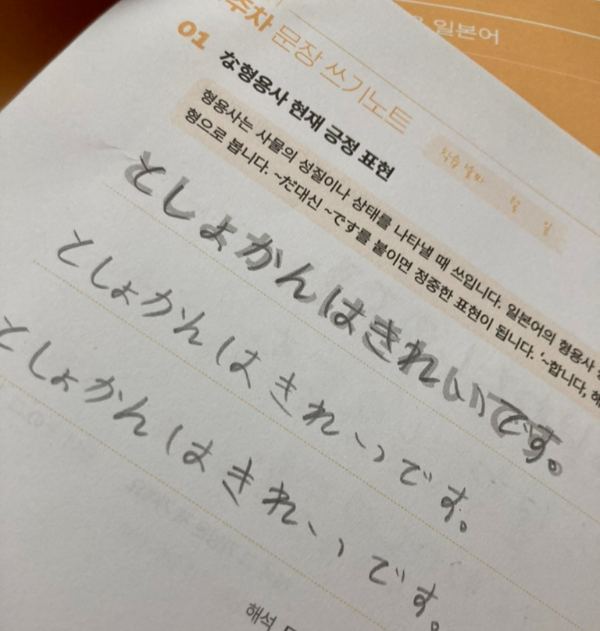 일본어
주차 문장 쓰기노트
01
な형용사 현재 긍정 표현
학습 날짜 월 일
형용사는 사물의 성질이나 상태를 나타낼 때 쓰입니다. 일본어의 형용사
형으로 봅니다. ~だ대신 ~です를 붙이면 정중한 표현이 됩니다. '~합니다, 해
としょかんはきれいです。
としょかんはきれいです。
としょかんはきれいです。
해석